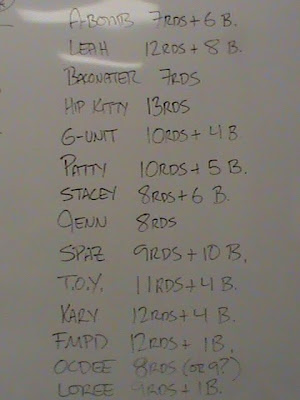 A-BOMB 7RDS + 6 B.
LEAH 12RDS + 8 B.
BACONATER 7RDS
HIP KITTY 13RDS
G-UNIT 10RDS + 4 B
PATTY 10RDS + 5 B.
STACEY 8RDS + 6 B.
JENN 8RDS
SPAZ 9RDS + 10 B.
T.O.Y. 11RDS + 4 B.
KARY 12RDS + 4 B.
FMPD 12RDS + 1 B.
OCDEE 8RDS (OR 9?)
LOREE 9RDS + 1 B.